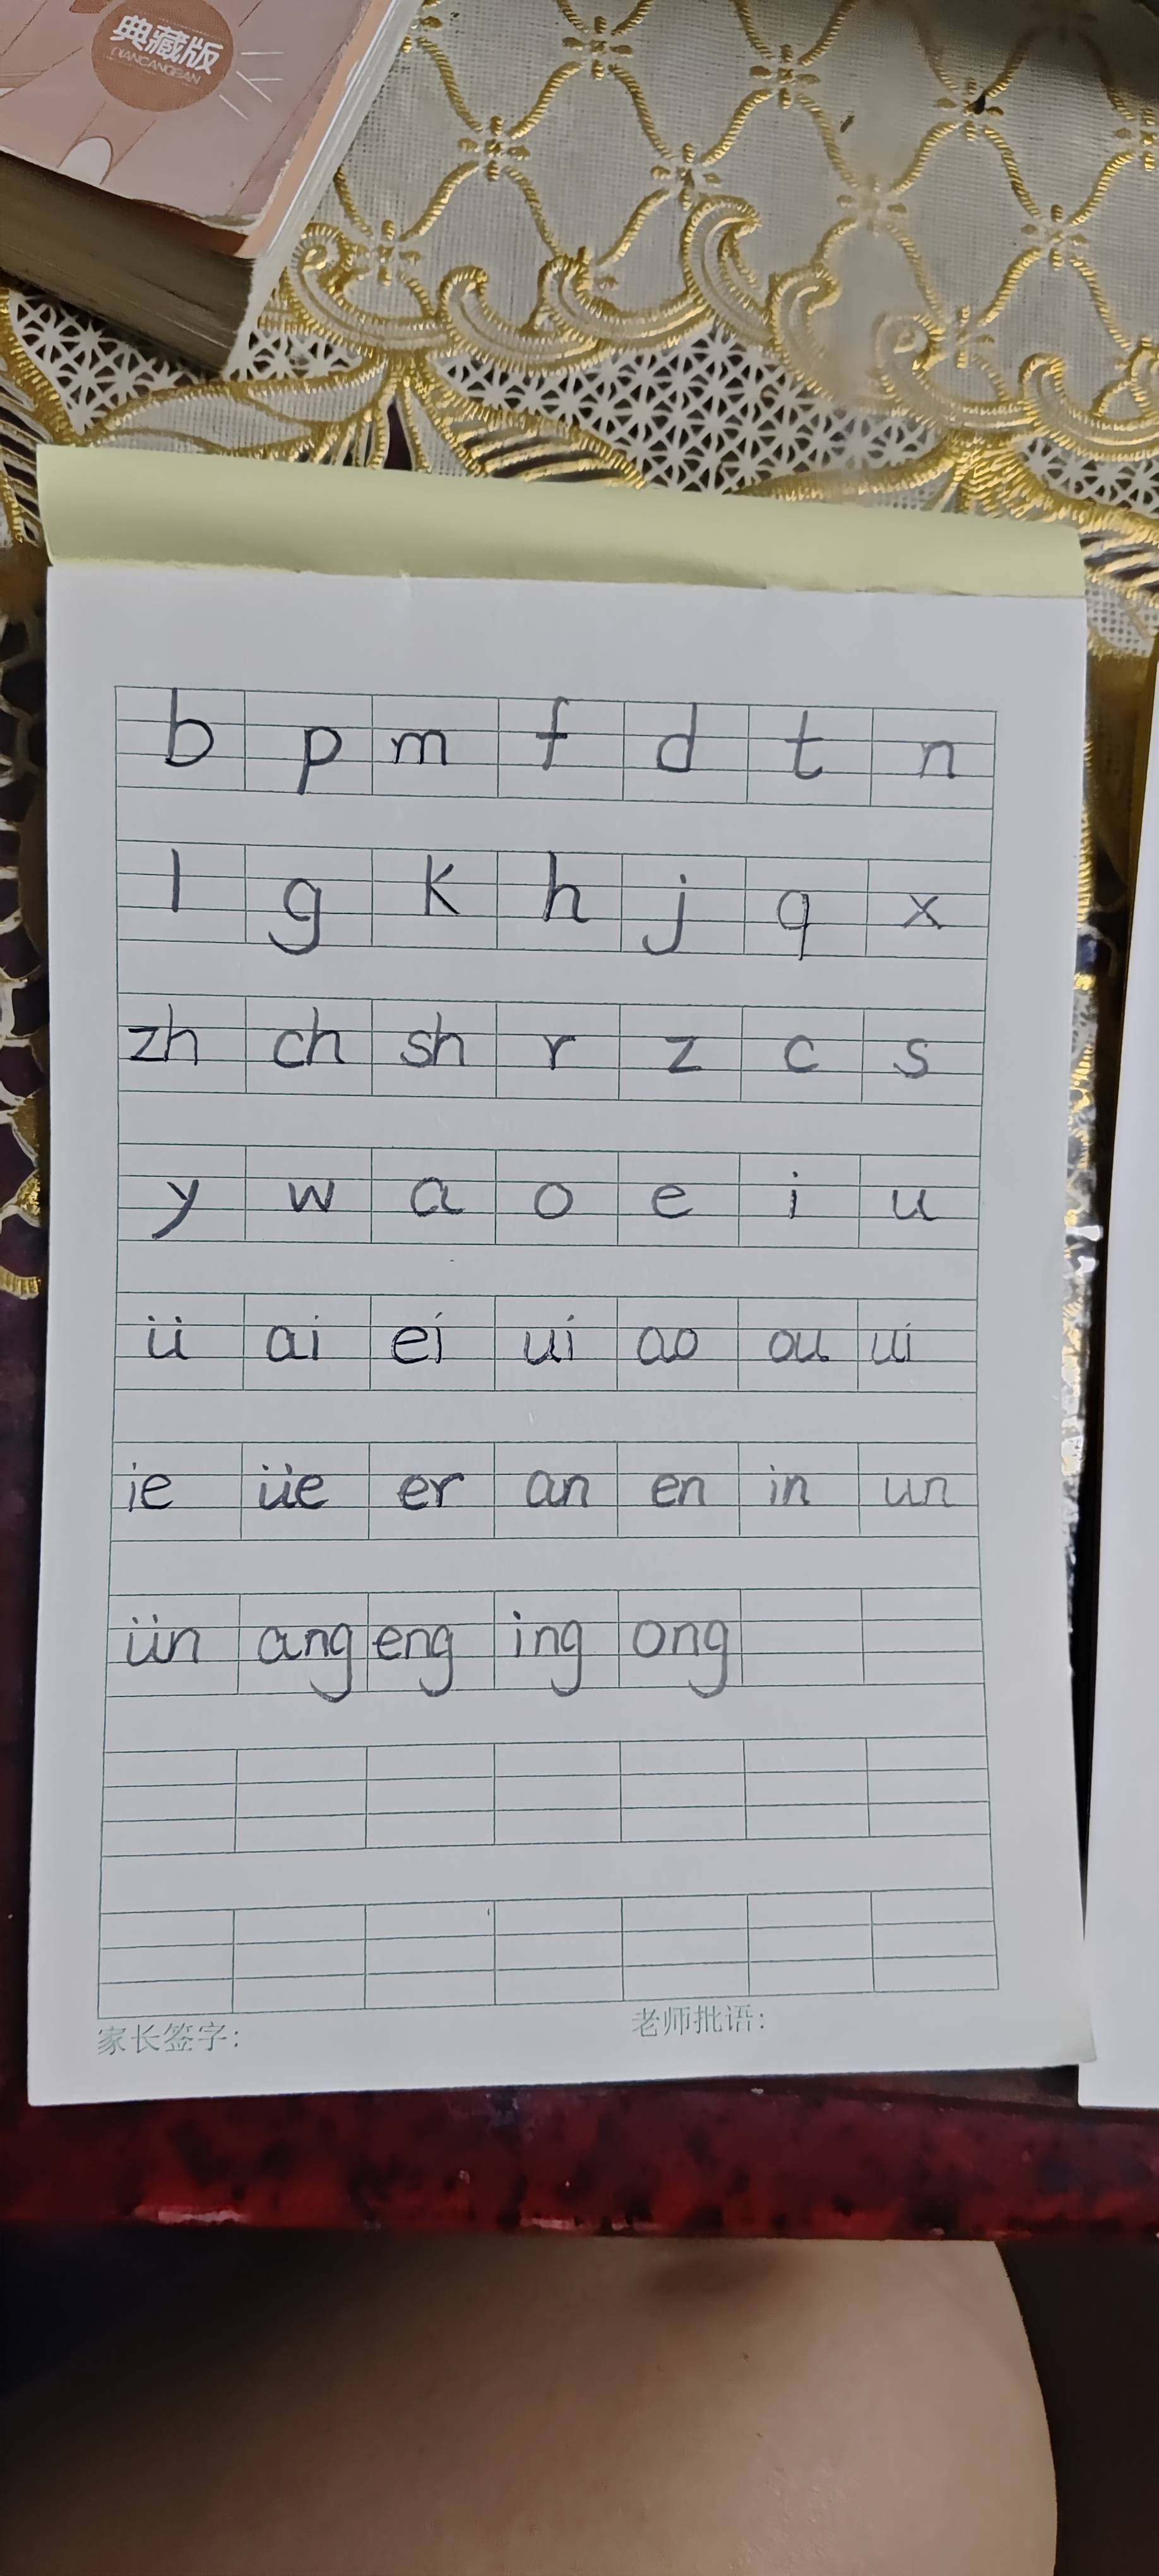 典藏版
DIANCANGBAN
b p m f d t n
l g k h j q x
zh ch sh r z c s
y w a o e i u
ü ai ei ui ao ou ui
ie üe er an en in un
ün ang eng ing ong
家长签字: 老师批语: